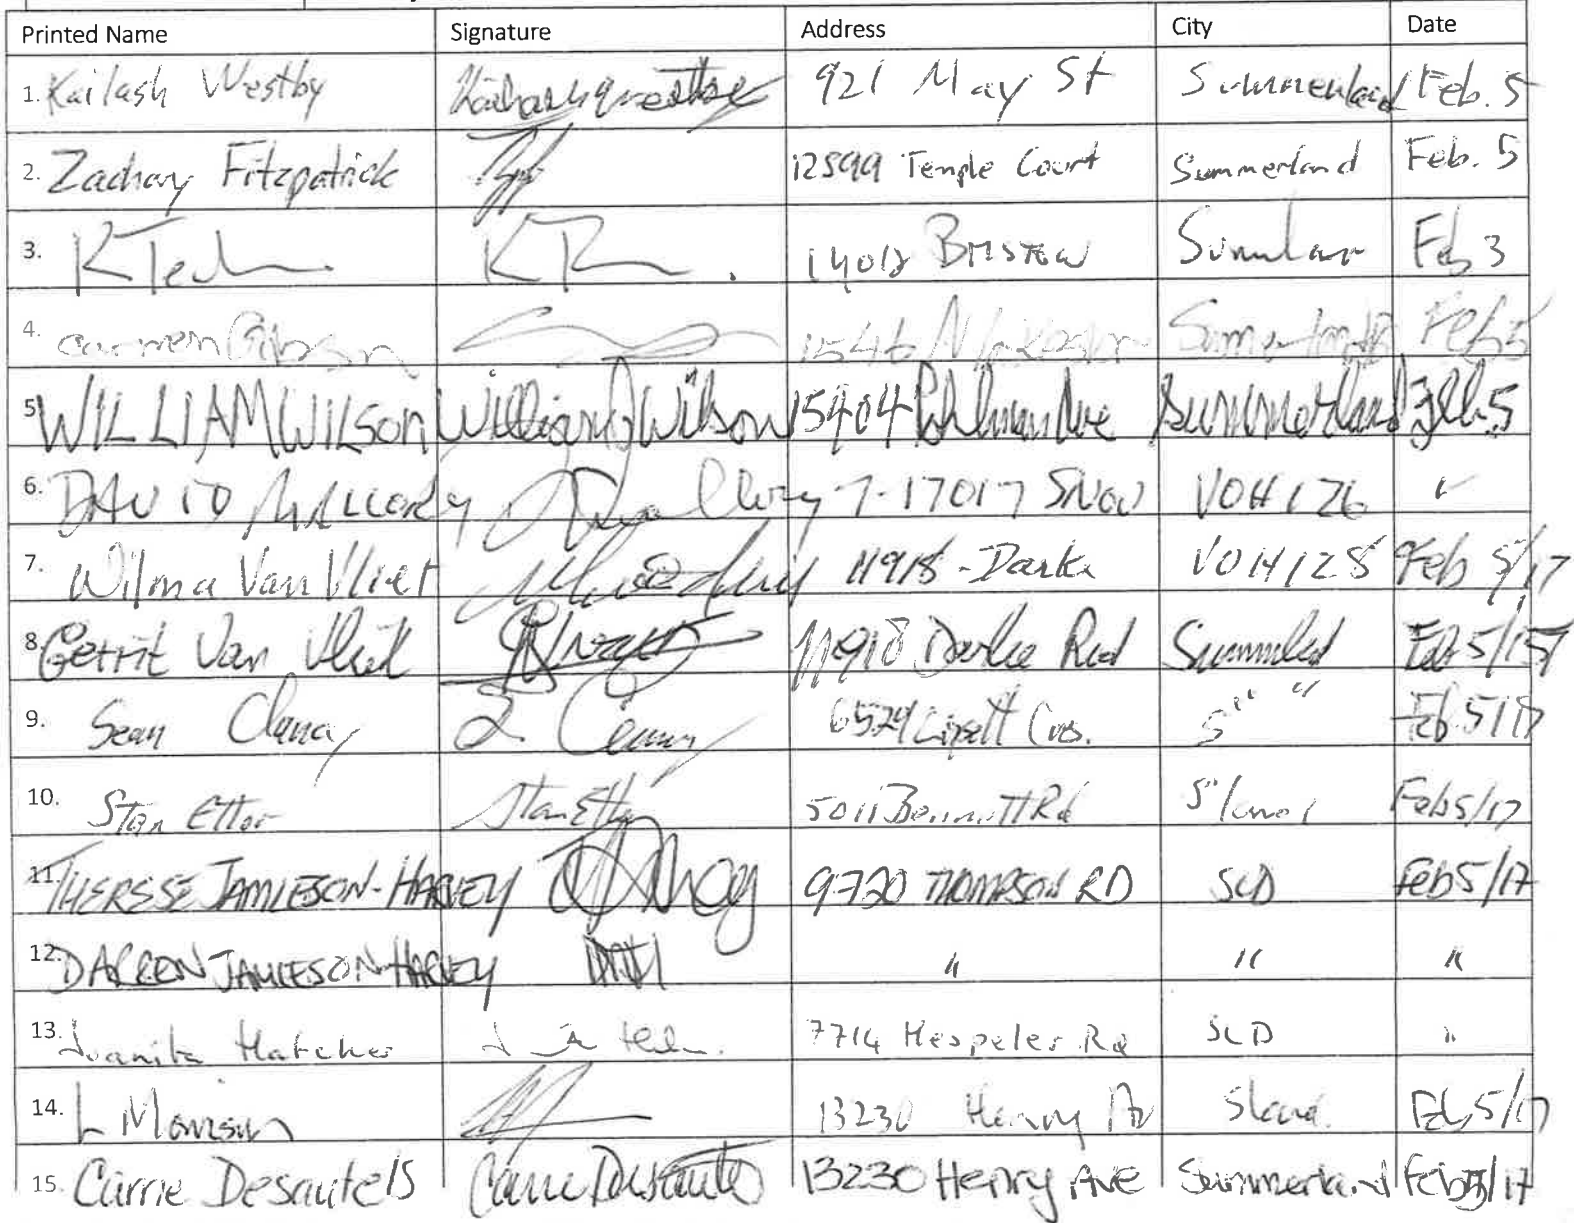 Printed Name Signature Address City Date
1. Kailash Westby Kailash Westby 921 May St Summerland Feb. 5
2. Zachary Fitzpatrick 12599 Temple Court Summerland Feb. 5
3. K 14012 Bristow Feb 3
4. Carmen Gibson 1546 Feb 5
5. WILLIAM WILSON William Wilson 15404 Ave Summerland Feb 5
6. DAVID MALLORY 7-17017 SNOW V0H1Z6 "
7. Wilma Van Vliet 11918 - Darke V0H1Z8 Feb 5/17
8. Gerrit Van Vliet 11918 Darke Rd Feb 5/17
9. Sean Clancy 6529 Cres. S " " Feb 5/17
10. Stan Etter Stan Etter 5011 Bennett Rd S'land Feb 5/17
11. THERESE JAMIESON-HARVEY 9720 THOMPSON RD SLD Feb 5/17
12. DARREN JAMIESON-HARVEY " " "
13. Juanita Hatcher 7714 Hespeler Rd SLD "
14. L Morrison 13230 Henry Av Sland. Feb 5/17
15. Carrie Desautels Carrie Desautels 13230 Henry Ave Summerland Feb 5/17